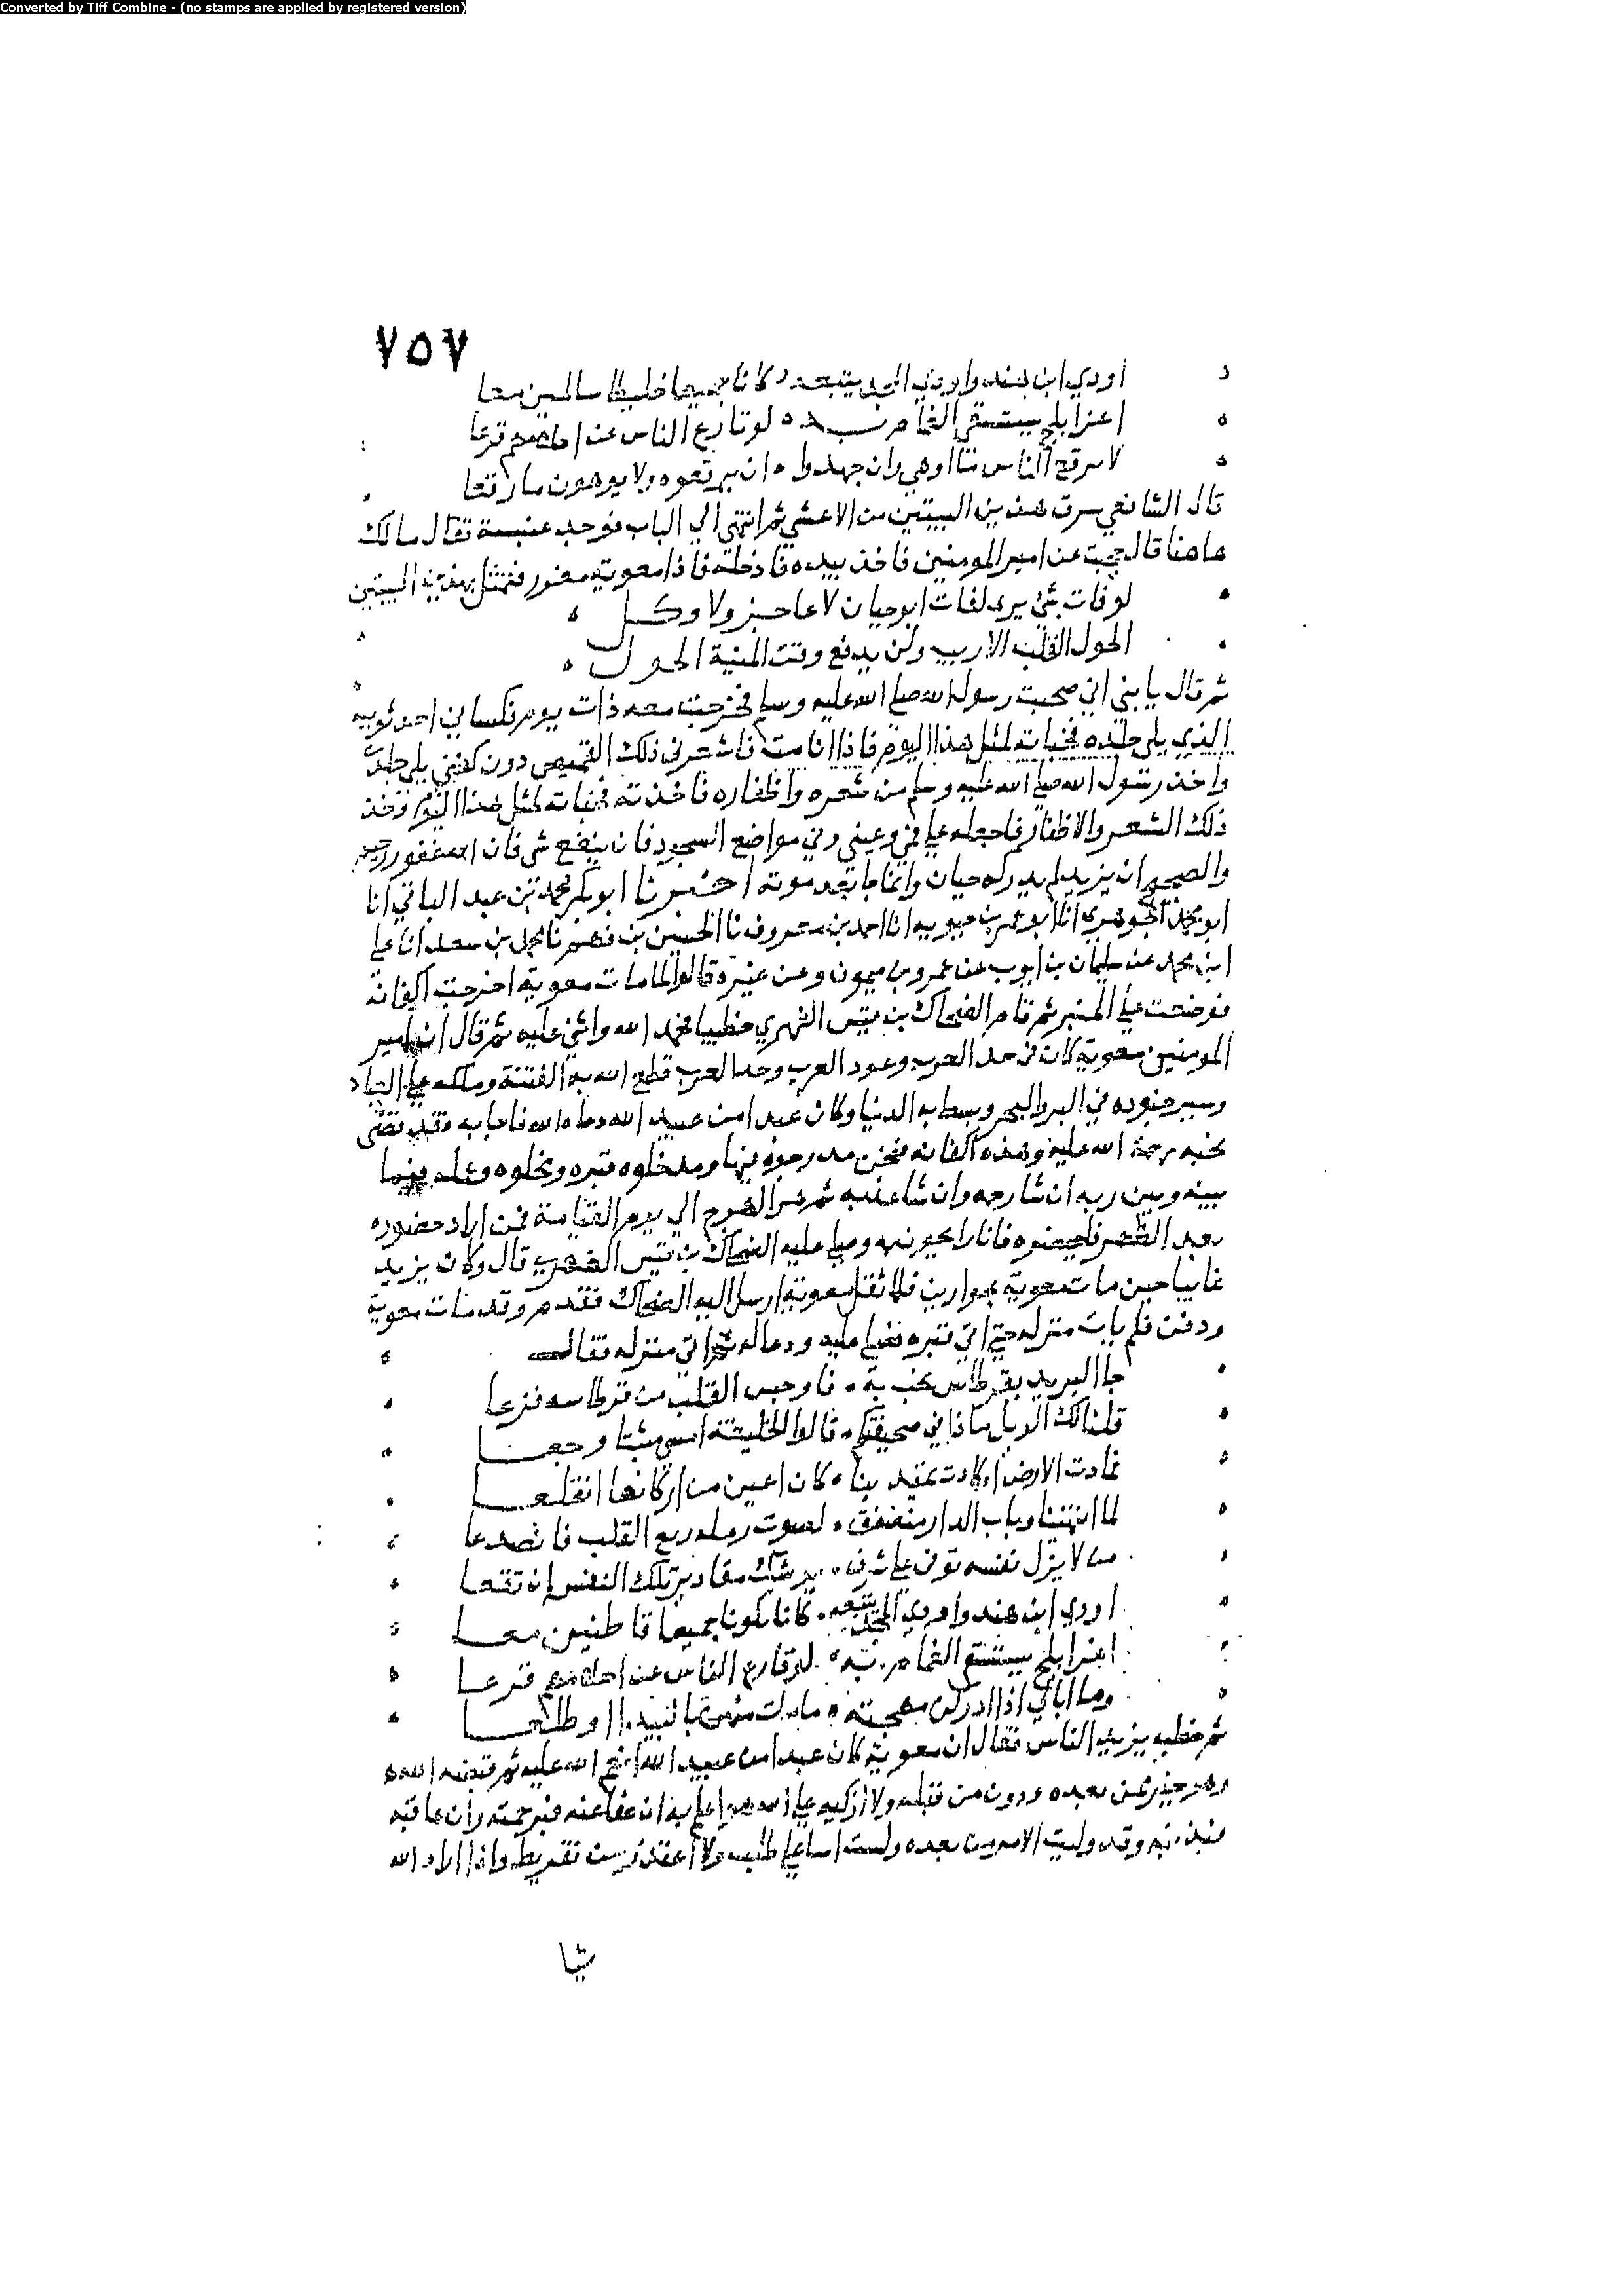 Converted by Tiff Combine - (no stamps are applied by registered version)
٧٥٧
اودي ابن هند واودي المجد يتبعه كانا جميعا خليطا سالمين معا
اغر ابلج يستسقى الغمام به لو قارع الناس عن احلامهم قرعا
لا يرقع الناس ما اوهي وان جهدوا ان يرقعوه ولا يوهون ما رقعا
قال الشافعي سرق هذين البيتين من الاعشي ثم انتهي الي الباب فوجد عنبسة فقال مالك
هاهنا قال حجبت عن امير المومنين فاخذ بيده فادخله فاذا معوية مغمور فتمثل بهذين البيتين
لو فات شي يرى لفات ابو حيان لا عاجز ولا وكل
الحول القلب الاريب ولن يدفع وقت المنية الحول
ثم قال يا بني اني صحبت رسول الله صلى الله عليه وسلم فخرجت معه ذات يوم فكساني احد ثوبيه
الذي يلي جلده فخباته لمثل هذا اليوم فاذا انا مت فاشعرني ذلك القميص دون كفني يلي جلدي
واخذ رسول الله صلى الله عليه وسلم من شعره واظفاره فاخذته فخباته لمثل هذا اليوم فخذ
ذلك الشعر والاظفار فاجعله علي فمي وعيني وفي مواضع السجود فان ينفع شي فان الله غفور رحيم
والصحيح ان يزيد لم يدركه حيا وانما جا بعد موته اخبرنا ابو بكر محمد بن عبد الباقي انا
ابو محمد الجوهري انا ابو عمر بن حيويه انا احمد بن معروف نا الحسين بن فهم نا محمد بن سعد انا علي
ابن محمد عن سليمان بن ايوب عن عمرو بن ميمون وعن غيره قالوا لما مات معوية اخرجت اكفانه
فوضعت علي المنبر ثم قام الضحاك بن قيس الفهري خطيبا فحمد الله واثني عليه ثم قال ان امير
المومنين معوية كان في حد العرب وعود العرب وحد العرب قطع الله به الفتنة وملكه علي العباد
وسير جنوده في البر والبحر وبسط به الدنيا وكان عبدا من عبيد الله دعاه الله فاجابه فقد قضى
نحبه رحمة الله عليه وهذه اكفانه فنحن مدرجوه فيها ومدخلوه قبره ومخلوه وعمله فيما
بينه وبين ربه ان شا رحمه وان شا عذبه ثم هو الهرج الي يوم القيامة فمن اراد حضوره
بعد الظهر فليحضره فانا رايحون به وصلي عليه الضحاك بن قيس الفهري قال وكان يزيد
غايبا حين مات معوية بحوارين فلما ثقل معوية ارسل اليه الضحاك فقدم وقد مات معوية
ودفن فلم يات منزله حتي اتي قبره فصلي عليه ودعا له ثم اتي منزله فقال
جا البريد بقرطاس يخب به فاوجس القلب من قرطاسه فزعا
قلنا لك الويل ماذا في صحيفتكم قالوا الخليفة امسي مثبتا وجعا
فمادت الارض او كادت تميد بنا كان اغبر من اركانها انقلعا
لما انتهينا وباب الدار منصفق لصوت رملة ريع القلب فانصدعا
من لا يزل نفسه توفي علي شرف يوشك مقادير تلك النفس ان تقعا
اودي ابن هند واودي المجد يتبعه كانا يكونا جميعا قاطنين معا
اغر ابلج يستسقي الغمام به لو قارع الناس عن احلامهم قرعا
وما ابالي اذا ادركن مهجته ما مات منهن بالبيدا او طلعا
ثم خطب يزيد الناس فقال ان معوية كان عبدا من عبيد الله انعم الله عليه ثم قبضه اليه
وهو خير ممن بعده ودون من قبله ولا ازكيه علي الله هو اعلم به ان عفا عنه فبرحمته وان عاقبه
فبذنبه وقد وليت الامر من بعده ولست اسا علي طلب ولا اعتذر من تفريط واذا اراد الله
شيا